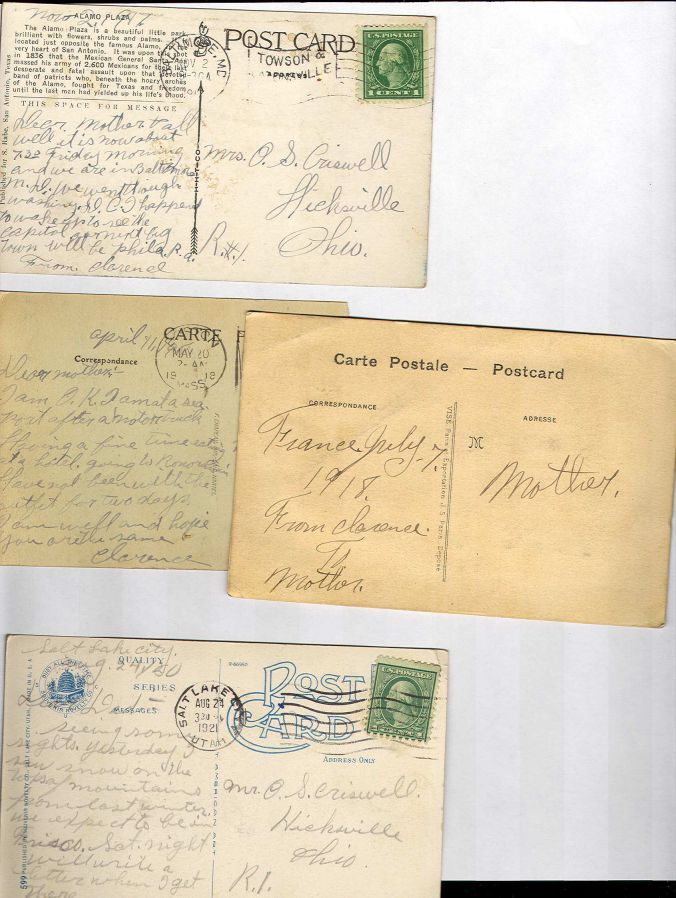 Nov 2, 1917
ALAMO PLAZA
The Alamo Plaza is a beautiful little park
brilliant with flowers, shrubs and palms.
located just opposite the famous Alamo,
very heart of San Antonio. It was upon this
in 1836 that the Mexican General Santa
massed his army of 2,600 Mexicans for their last
desperate and fatal assault upon that devoted
band of patriots who, beneath the hoary arches
of the Alamo, fought for Texas and freedom
until the last man had yielded up his life's blood.
THIS SPACE FOR MESSAGE
Published for S. Rabe, San Antonio, Texas
Dear Mother & all
well it is now about
7:22 Friday morning
and we are in Baltimore
M.D. we went through
Washing. D.C. I happend
to wake up to see the
capitol our next big
town will be phila. P.a.
From. Clarence
MD.
NOV 2
POST CARD
TOWSON &
U.S. POSTAGE
1 CENT 1
Mrs. O. S. Criswell
Hicksville
Ohio.
R.#1.
April
CARTE
Correspondance
MAY 20
18
Dear mother:
I am O.K. I am at a sea
port after a motor truck
Having a fine time
at a hotel. going to
Have not been with the
outfit for two days
I am well and hope
you are the same
Clarence
Carte Postale — Postcard
CORRESPONDANCE
ADRESSE
VISE Paris
France July 7,
1918.
From Clarence.
To
Mother.
M
Mother.
Salt Lake City.
Aug. 24
QUALITY
SERIES
MESSAGES
seeing some
sights. Yesterday I
saw snow on the
mountains
from last winter.
we expect to be in
Frisco. Sat. night
will write a
letter when I get
there
SALT LAKE CITY
AUG 24
1921
UTAH
POST
CARD
ADDRESS ONLY
U.S. POSTAGE
Mr. O. S. Criswell.
Hicksville
Ohio.
R.1.
599